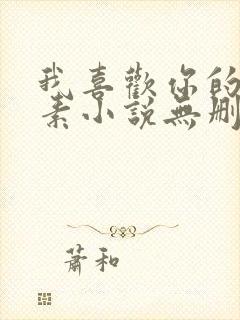 我喜歡你的
素小說無刪
蕭和